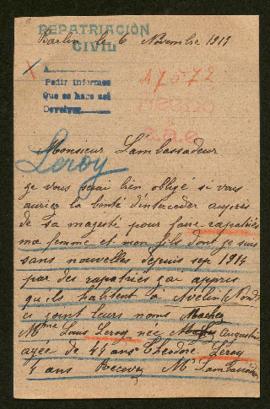 REPATRIACIÓN
CIVIL
Berlin le 6 Novembre 1917
A
Pedir informes
Que se hara asi
Devolver
A 7572
Leroy
Monsieur L'ambassadeur
je vous serai bien obligé si vous
auriez la bonté d'interceder auprès
de sa majesté pour faire rapatriés
ma femme et mon fils dont je suis
sans nouvelles depuis sep 1914
par des rapatriés j'ai appris
qu'ils habitent à Avelin Nord
ci joint leurs noms
Mme Louis Leroy née Augustine
agée de 41 ans Théodore Leroy
4 ans Recevez Mr